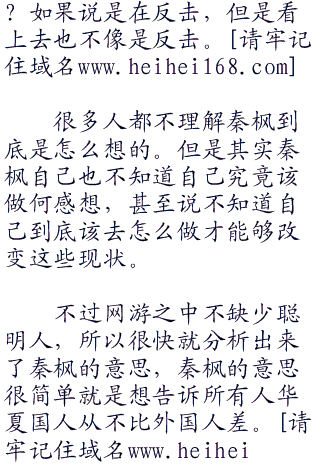 ？如果说是在反击，但是看
上去也不像是反击。[请牢记
住域名www.heihei168.com]
很多人都不理解秦枫到
底是怎么想的。但是其实秦
枫自己也不知道自己究竟该
做何感想，甚至说不知道自
己到底该去怎么做才能够改
变这些现状。
不过网游之中不缺少聪
明人，所以很快就分析出来
了秦枫的意思，秦枫的意思
很简单就是想告诉所有人华
夏国人从不比外国人差。[请
牢记住域名www.heihei